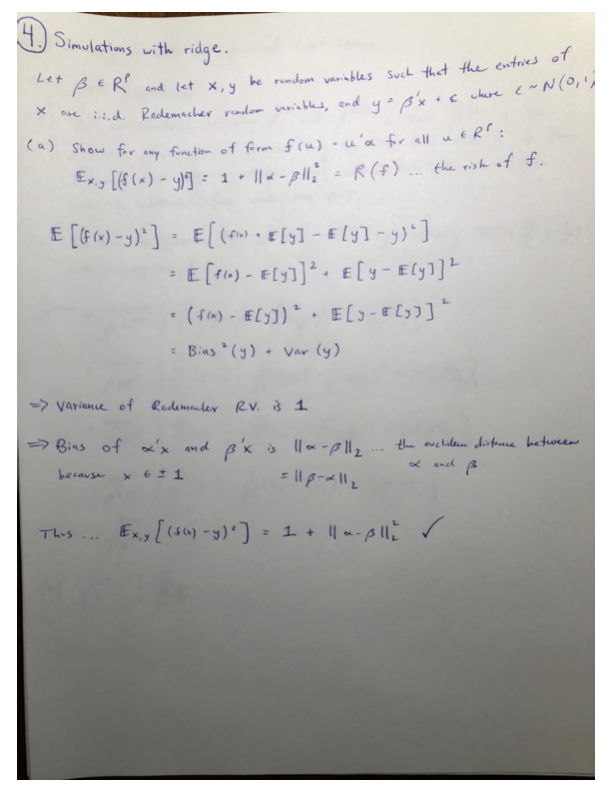 4. Simulations with ridge.
Let β ∈ ℝᵖ and let x, y be random variables such that the entries of
x are i.i.d. Rademacher random variables, and y = β'x + ε where ε ~ N(0,1)
(a) Show for any function of form f(u) = u'α for all u ∈ ℝᵖ :
E_{x,y} [(f(x) - y)²] = 1 + ||α - β||₂² = R(f) ... the risk of f.
𝔼 [(f(x) - y)²] = 𝔼[(f(x) + 𝔼[y] - 𝔼[y] - y)²]
= 𝔼[f(x) - 𝔼[y]]² + 𝔼[y - 𝔼[y]]²
= (f(x) - 𝔼[y])² + 𝔼[y - 𝔼[y]]²
= Bias²(y) + Var(y)
⇒ Variance of Rademacher R.V. is 1
⇒ Bias of α'x and β'x is ||α - β||₂ ... the euclidean distance between
because x ∈ ± 1 = ||β - α||₂ α and β
Thus ... 𝔼_{x,y} [(f(x) - y)²] = 1 + ||α - β||₂² ✓